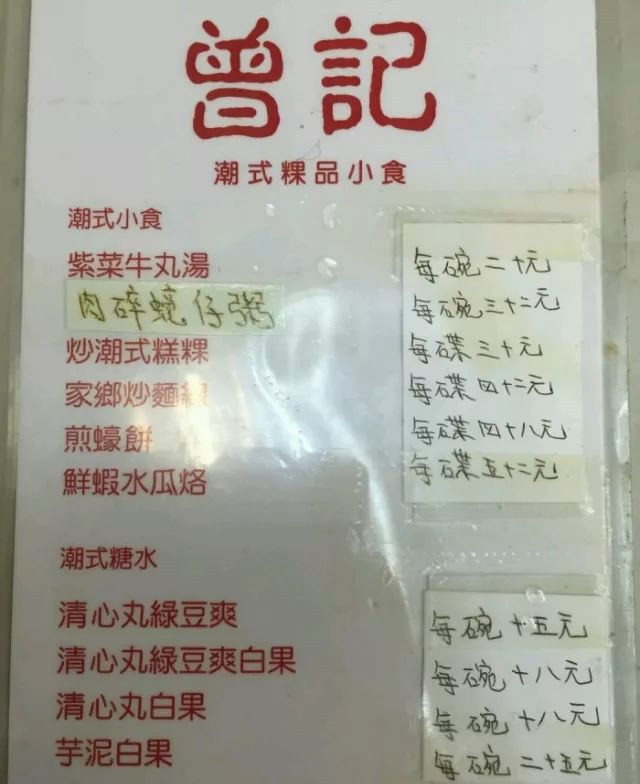 曾記
潮式粿品小食
潮式小食
紫菜牛丸湯 每碗二十元
肉碎蠔仔粥 每碗三十二元
炒潮式糕粿 每碟三十元
家鄉炒麵線 每碟四十二元
煎蠔餅 每碟四十八元
鮮蝦水瓜烙 每碟五十二元
潮式糖水
清心丸綠豆爽 每碗十五元
清心丸綠豆爽白果 每碗十八元
清心丸白果 每碗十八元
芋泥白果 每碗二十五元